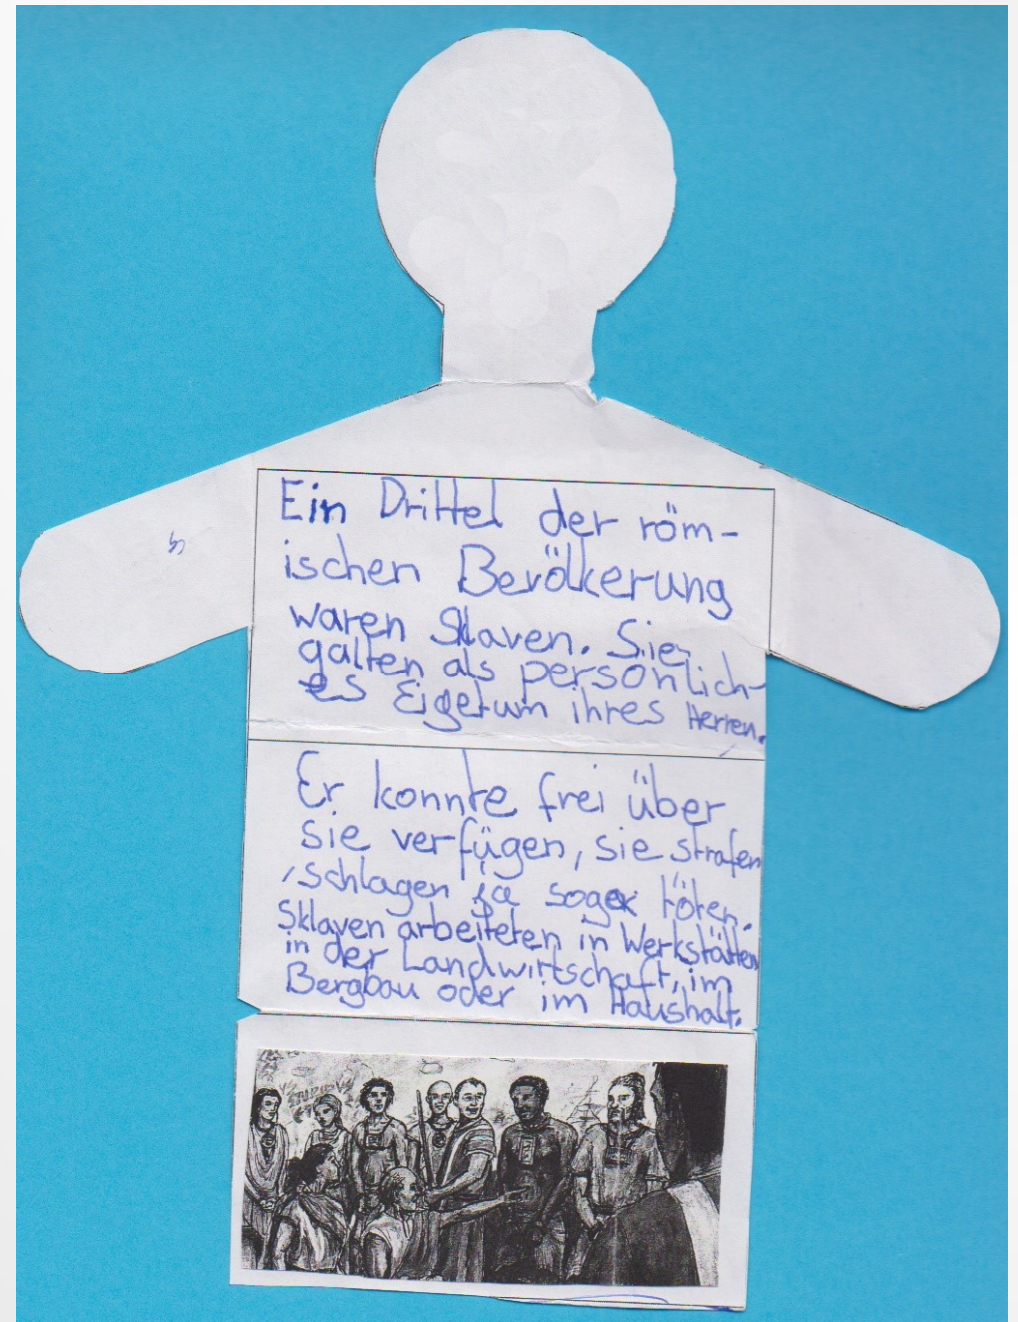 Ein Drittel der röm-
ischen Bevölkerung
waren Sklaven. Sie
galten als persönlich-
es Eigetum ihres Herren.
Er konnte frei über
sie verfügen, sie strafen
, schlagen ja sogar töten.
Sklaven arbeiteten in Werkstätten
in der Landwirtschaft, im
Bergbau oder im Haushalt.